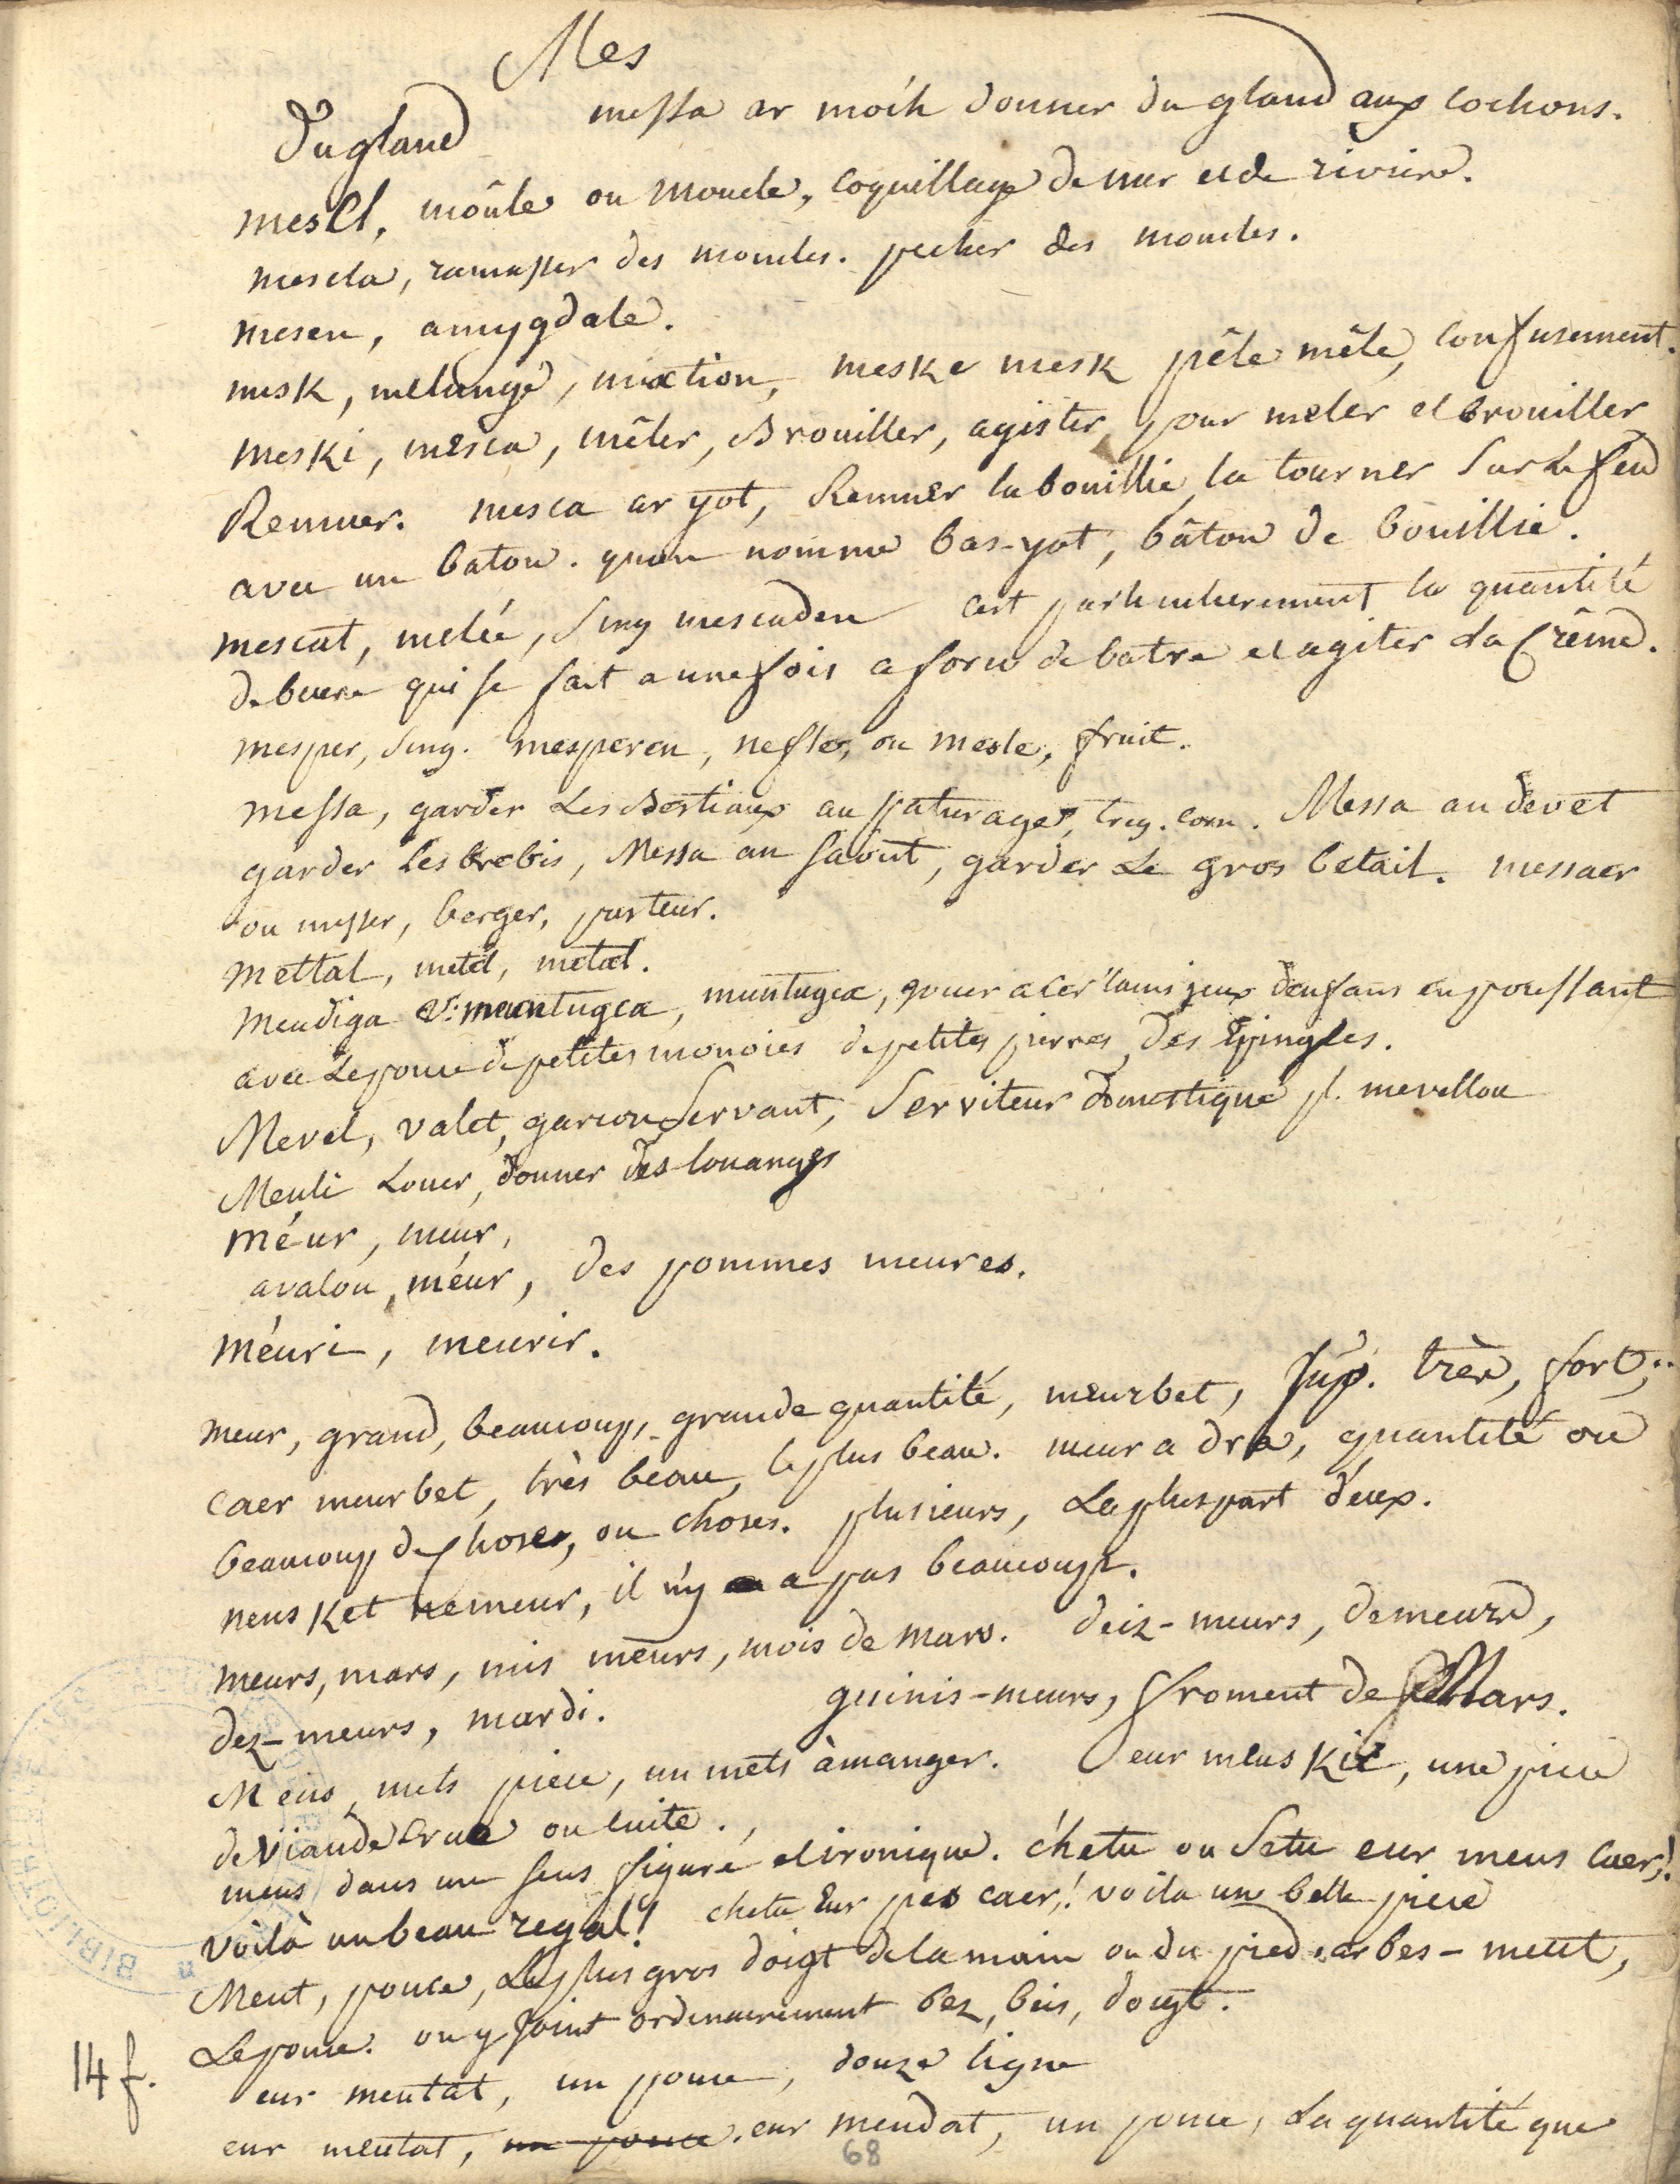 Mes
du gland messa ar moc'h donner du gland aux cochons.
mescl, môule ou moucle, coquillage de mer et de riviere.
mescla, ramasser des moucles. pecher des moucles.
mesen, amygdale.
mesk, melange, mixtion, meske mesk pêle mêle, confusement.
meski, mesca, mêler, Brouiller, agister pour meler et brouiller
Remuer. mesca ar yot, Remuer la bouillie, la tourner sur le feu
avec un baton. quon nomme bas-yot, bâton de bouillie.
mescat, melée, sing mescaden cest particulierement la quantité
de buere qui se fait a une fois a force de batre et agiter la Crême.
mesper, sing. mesperen, nefle, ou mesle, fruit.
messa, garder Les Bestiaux au paturages, treg. corn. Messa an devet
garder les brebis, Messa an saout, garder Le gros betail. messaer
ou messer, berger, pasteur.
mettal, metel, metal.
mendiga v: mentugea, muntugea, jouer a certains jeux denfans en poussant
avec Le pouce de petites monoies de petites pierres, des Epingles.
Mevel, valet, garcon servant, Serviteur domestique pl. mevellou
Meuli Louer, donner des louanges
méur, meur,
avalou, méur, des pommes meures.
méuri, meurir.
meur, grand, beaucoup, grande quantité, meurbet, sup. très, fort,..
caer meurbet, très beau, le plus beau. meur a dra, quantité ou
beaucoup de choses, ou choses. plusieurs, La pluspart d'eux.
neus ket nemeur, il n'y a pas beaucoup.
meurs, mars, mis meurs, mois de mars. deiz-meurs, demeurs,
dez-meurs, mardi. guinis-meurs, froment de Mars.
Meus, mets piece, un mets à manger. eur meus kic, une piece
de viande Crue ou cuite.
meus dans un sens figuré et ironique. c'hetu ou Setu eur meus Caer!
voilà un beau regal! chetu Eur pes caer,! voila une belle piece
Meut, pouce, Le plus gros doigt de la main ou du pied, ar bes-meut,
Le pouce. on y joint ordinairement bez, beis, doigt.
14 f.
eur meutat, un pouce, douze ligne
eur meutat, un pouce. eur meudat, un pouce, La quantité que
68